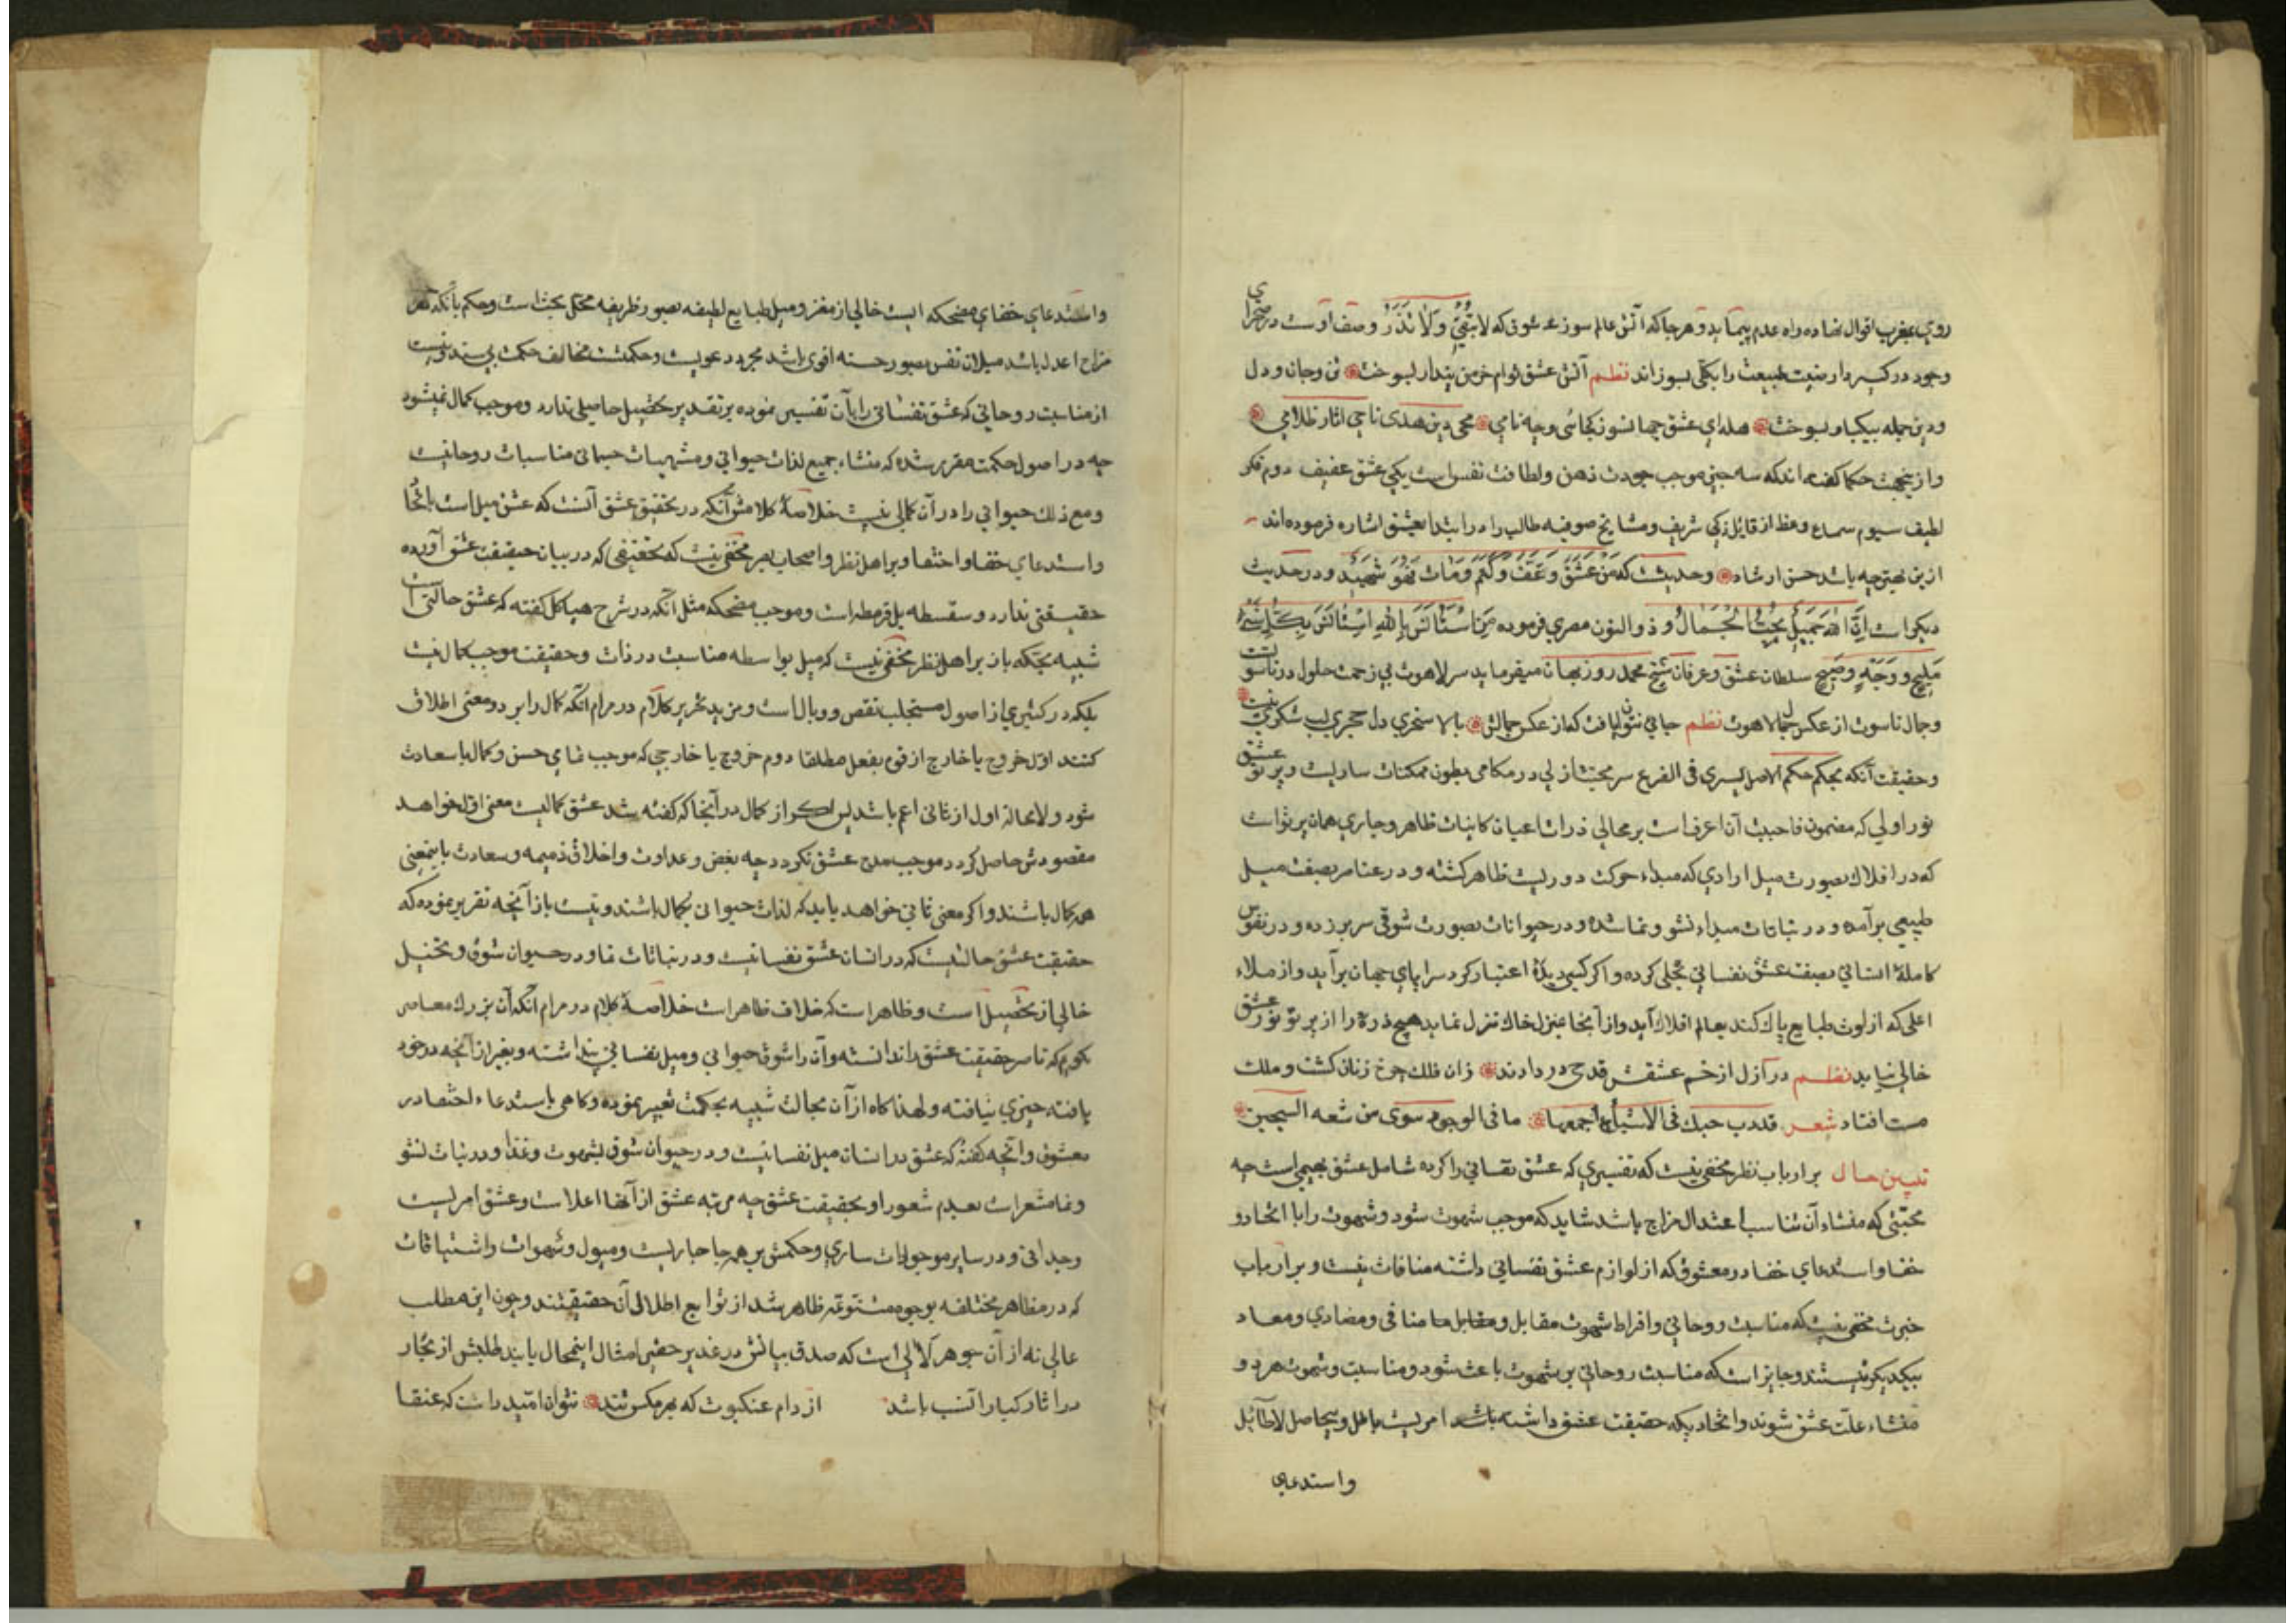 روی بمغرب اقوال نهاده راه عدم پیماید و هر جا که آتش عالم سوز عشق که لا تبقی ولا تذر وصف اوست در صحرای
وجود در کیرد ارضیت طبیعت را بکلی بسوزاند نظم آتش عشق توام خرمن پندار بسوخت تن و جان و دل
و دین جمله بیکبار بسوخت هله ای عشق جهانسوز کجائی وچه نامی محی دین هدی ناحی اثار ظلامی
و ازینجهت حکما کفته اند که سه چیز موجب جودت ذهن ولطافت نفس است یکی عشق عفیف دوم فکر
لطیف سیوم سماع وعظ از قایل زکی شریف ومشایخ صوفیه طالب را در ابتدا بعشق اشاره فرموده اند
ازین بهتر چه باشد حسن ارشاد وحدیث که من عشق وعف وکتم ومات فهو شهید ودر حدیث
دیکر است ان الله جمیل یحب الجمال و ذو النون مصری فرموده من استانس بالله استانس بکل شیء
ملیح و وجه صبیح سلطان عشق وعرفان شیخ محمد روزبهان میفرماید سر لاهوت بی زحمت حلول در ناسوتست
وجمال ناسوت از عکس جمال لاهوت نظم جایی نتوان یافت که از عکس جمالش بالا شجری دل حجری لب شکری نیست
وحقیقت آنکه بحکم حکم الاصل یسری فی الفرع سر محبت ازلی در مکامن بطون ممکنات ساریست وپرتو عشق
نور اولی که مضمون فاحببت ان اعرف است بر مجالی ذرات اعیان کاینات ظاهر وجاری همان پرتوات
که در افلاک بصورت میل ارادی که مبداء حرکت دوریست ظاهر کشته و در عناصر بصفت میل
طبیعی برآمده و در نباتات مبداء نشو ونما شده و در حیوانات بصورت شوقی سر بر زده و در نفوس
کاملهٔ انسانی بصفت عشق نفسانی تجلی کرده واکر کسی دیدهٔ اعتبار کرد سراپای جهان برآید واز ملاء
اعلی که از لوث طبایع پاک کند بعالم افلاک آید واز آنجا بمنزل خاک تنزل نماید هیچ ذره را از پرتو نور عشق
خالی نیابد نظم در ازل از خم عشقش قدحی در دادند زان فلک چرخ زنان کشت و ملک
مست افتاد شعر قد دب حبک فی الاشیاء اجمعها ما فی الوجود سوی من شعه
تبیین حال بر ارباب نظر مخفی نیست که تفسیری که عشق نفسانی را کرده شامل عشق بهیمی است چه
محبتی که منشاء آن تناسب اعتدال مزاج باشد شاید که موجب شهوت شود وشهوت را با اتحاد و
خفا واستدعای خفا در معشوق که از لوازم عشق نفسانی داشته منافات نیست و بر ارباب
خبرت مخفی نیست که مناسبت روحانی وافراط شهوت مقابل ومقابل ما منافی ومضادی ومعاد
بیکدیکر نیستند وجایز است که مناسبت روحانی بر شهوت باعث شود ومناسبت وشهوت هر دو
منشاء علت عشق شوند واتحاد یکه حقیقت عشق داشته باشد امریست باطل وبیحاصل لاطائل
واستدعای
واستدعای خفای مضحکه ایست خالی از مغز و میل طبایع لطیفه بصور ظریفه محل بحث است وحکم بانکه هر
مزاج اعدل باشد میلان نفس بصور حسنه اقوی باشد مجرد دعویست وحکمتش مخالف حکمت بی سند ونیست
از مناسبت روحانی که عشق نفسانی را بآن تفسیر نموده بر تقدیر تحصیل حاصلی ندارد وموجب کمال نمیشود
چه در اصول حکمت مقرر شده که منشاء جمیع لذات حیوانی ومشتهیات جسمانی مناسبات روحانیست
ومع ذلک حیوانی را در آن کمالی نیست خلاصهٔ کلامش آنکه در تحقیق عشق آنست که عشق میل است باتحاد
واستدعای خفا واختفا وبر اهل نظر واصحاب بصر مخفی نیست که تحقیقی که در بیان حقیقت عشق آورده
حقیقتی ندارد و سفسطه بل قرمطه است وموجب مضحکه مثل آنکه در شرح هیاکل کفته که عشق حالتی است
شبیه بحکه باز بر اهل نظر مخفی نیست که میل بواسطه مناسبت در ذات وحقیقت موجب کمال نیست
بلکه در کثیری از اصول مستجلب نقص و وبال است ومزید تحریر کلام در مرام آنکه کمال را بر دو معنی اطلاق
کنند اول خروج یا خارج از قوه بفعل مطلقا دوم خروج یا خارجی که موجب تمامی حسن وکمال یا سعادت
شود ولا محاله اول از ثانی اعم باشد پس اکر از کمال در آنجا که کفته شد عشق کمالیست معنی اول خواهد
مقصودش حاصل نکردد موجب مدح عشق نکردد چه بغض وعداوت واخلاق ذمیمه وسعادت باینمعنی
همه کمال باشند واکر معنی ثانی خواهد باید که لذات حیوانی کمال باشند ونیست باز آنچه تقریر نموده که
حقیقت عشق حالتیست که در انسان عشق نفسانیست و در نباتات نما ودر حیوان شوق وتخییل
خالی از تحصیل است وظاهر است که خلاف ظاهر است خلاصهٔ کلام در مرام آنکه آن بزرک معاصر
حقیقت عشق را ندانسته وآن را شوق حیوانی ومیل نفسانی پنداشته وبغیر از آنچه در خود
یافته چیزی نیافته ولهذا کاه از آن بحالت شبیه بحکه تعبیر نموده وکاهی باستدعاء اختصا در
معشوق وآنچه کفته که عشق در انسان میل نفسانیست و در حیوان شوق بشهوت وغذا ودر نبات نشو
ونما مشعر است بعدم شعور او بحقیقت عشق چه مرتبه عشق از آنها اعلاست وعشق امریست
وجدانی و در سایر موجودات ساری وحکمش بر همه جا جاریست ومیول وشهوات واشتیاقات
که در مظاهر مختلفه بوجوه متنوعه ظاهر شد از توابع اطلال آن حقیقتند وچون این مطلب
عالی نه از آن جوهر لآلی است که صدق بیانش در غدیر حضر امثال اینمحال یابند طلبش از بحار
در اثار کبار انسب باشد از دام عنکبوت که بهر مکس تنند نتوان امید داشت که عنقا